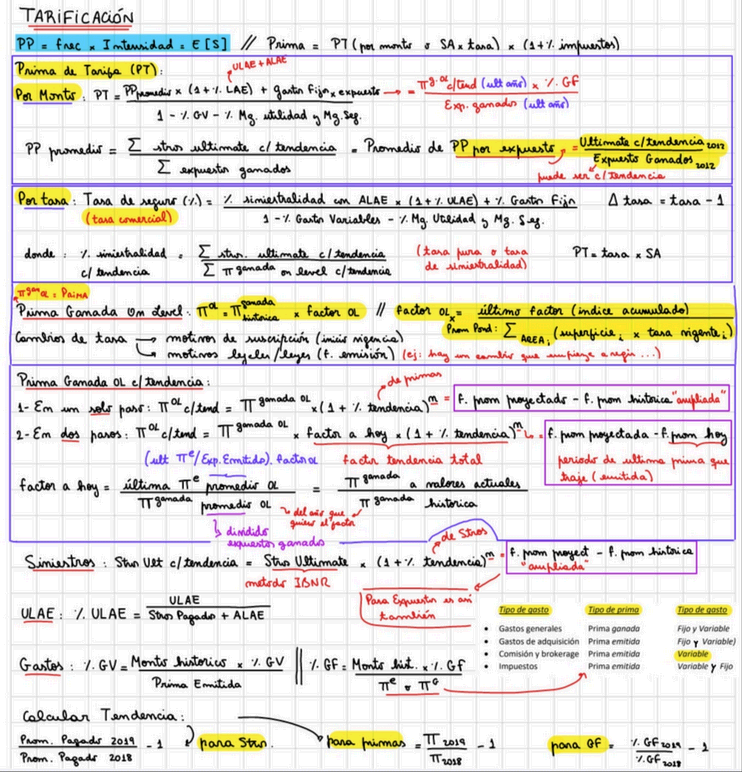 TARIFICACIÓN
PP = frec x Intensidad = E[S] // Prima = PT (por monto o SA x tasa) x (1+% impuestos)
Prima de Tarifa (PT):
ULAE + ALAE
Por Monto: PT = PP promedio x (1+% LAE) + gastos Fijos x expuesto
1 - % GV - % Mg. utilidad y Mg. Seg.
= π g. OL c/tend (ult año) x % GF
Exp. ganados (ult año)
PP promedio = Σ stros ultimate c/ tendencia
Σ expuestos ganados
= Promedio de PP por expuesto = Ultimate c/tendencia 2012
Expuestos Ganados 2012
puede ser c/Tendencia
Por tasa: Tasa de seguro (%) = % siniestralidad con ALAE x (1+% ULAE) + % Gastos Fijos
1 - % Gastos Variables - % Mg. Utilidad y Mg. Seg.
Δ tasa = tasa - 1
(tasa comercial)
donde: % siniestralidad c/ tendencia = Σ stros. ultimate c/ tendencia
Σ π ganada on level c/tendencia
(tasa pura o tasa de siniestralidad)
PT = tasa x SA
π gan OL = PRIMA
Prima Ganada On Level: π OL = π ganada histórica x factor OL // factor OL x = último factor (índice acumulado)
Prom Pond: Σ AREA i (superficie i x tasa vigente i)
Cambios de tasa → motivos de suscripción (inicio vigencia)
→ motivos legales/leyes (f. emisión) (ej: hay un cambio que empieza a regir ...)
Prima Ganada OL c/tendencia:
de primas
1- En un solo paso: π OL c/tend = π ganada OL x (1 + % tendencia) m = f. prom proyectada - f. prom histórica "ampliada"
2- En dos pasos: π OL c/tend = π ganada OL x factor a hoy x (1 + % tendencia) m = f. prom proyectada - f. prom hoy
periodo de última prima que traje (emitida)
(ult π e/Exp. Emitido). factor OL
factor tendencia total
factor a hoy = última π e promedio OL
π ganada promedio OL
= π ganada a valores actuales
π ganada histórica
del año que quiero el factor
dividido expuestos ganados
de Stros
Siniestros: Stros Ult c/tendencia = Stros Ultimate x (1 + % tendencia) m = f. prom proyect - f. prom histórica
"ampliada"
método IBNR
Para Expuestos es así también
ULAE: % ULAE = ULAE
Stros Pagado + ALAE
Tipo de gasto Tipo de prima Tipo de gasto
• Gastos generales Prima ganada Fijo y Variable
• Gastos de adquisición Prima emitida Fijo y Variable)
• Comisión y brokerage Prima emitida Variable
• Impuestos Prima emitida Variable y Fijo
Gastos: % GV = Monto histórico x % GV
Prima Emitida
% GF = Monto hist. x % GF
π e o π G
Calcular Tendencia:
Prom. Pagado 2019
Prom. Pagado 2018
- 1 para Stros.
para primas = π 2019
π 2018
- 1
para GF = % GF 2019
% GF 2018
- 1